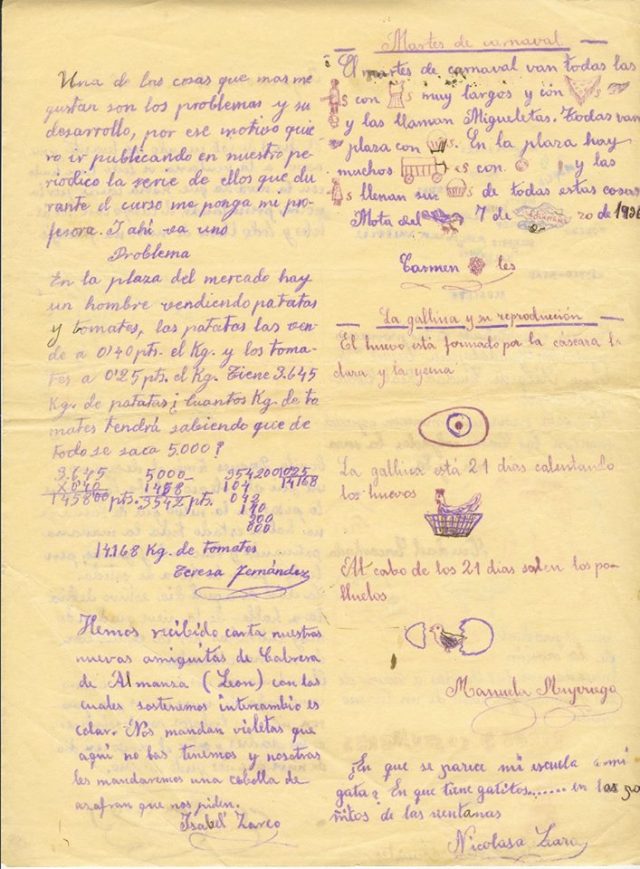 Una de las cosas que mas me
gustan son los problemas y su
desarrollo, por ese motivo quie
ro ir publicando en nuestro pe-
riódico la serie de ellos que du
rante el curso me ponga mi pro-
fesora. Y ahí va uno
Problema
En la plaza del mercado hay
un hombre vendiendo patatas
y tomates, las patatas las ven-
de a 0'40 pts. el Kg. y los toma-
tes a 0'25 pts. el Kg. Tiene 3.645
Kg. de patatas ¿ Cuantos Kg. de to
mates tendrá sabiendo que de
todo se saca 5.000?
3.645 5000 354200 0'25
X 0'40 1458 104 14168
145800 pts. 3542 pts. 042
170
200
000
14.168 Kg. de tomates
Teresa Fernández
Hemos recibido carta nuestras
nuevas amiguitas de Cabrera
de Almansa (Leon) con las
cuales sostenemos intercambio es
colar. Nos mandan violetas que
aquí no las tenemos y nosotras
les mandaremos una cebolla de
azafran que nos piden.
Isabel Zarco
Martes de carnaval
El martes de carnaval van todas las
s con s muy largos y
y las llaman Migueletas. Todas van
plaza con s. En la plaza hay
muchos s con y las
s llenan sus de todas estas cosas
Mota del 7 de ro de 1936
Carmen les
La gallina y su reproducción
El huevo está formado por la cáscara la
clara y la yema
La gallina está 21 dias calentando
los huevos
Al cabo de los 21 dias salen los po-
lluelos
Manuela Mujeriego
¿En que se parece mi escuela a mi
gata? En que tiene gatitos....... en los
ñitos de las ventanas
Nicolasa Zarco